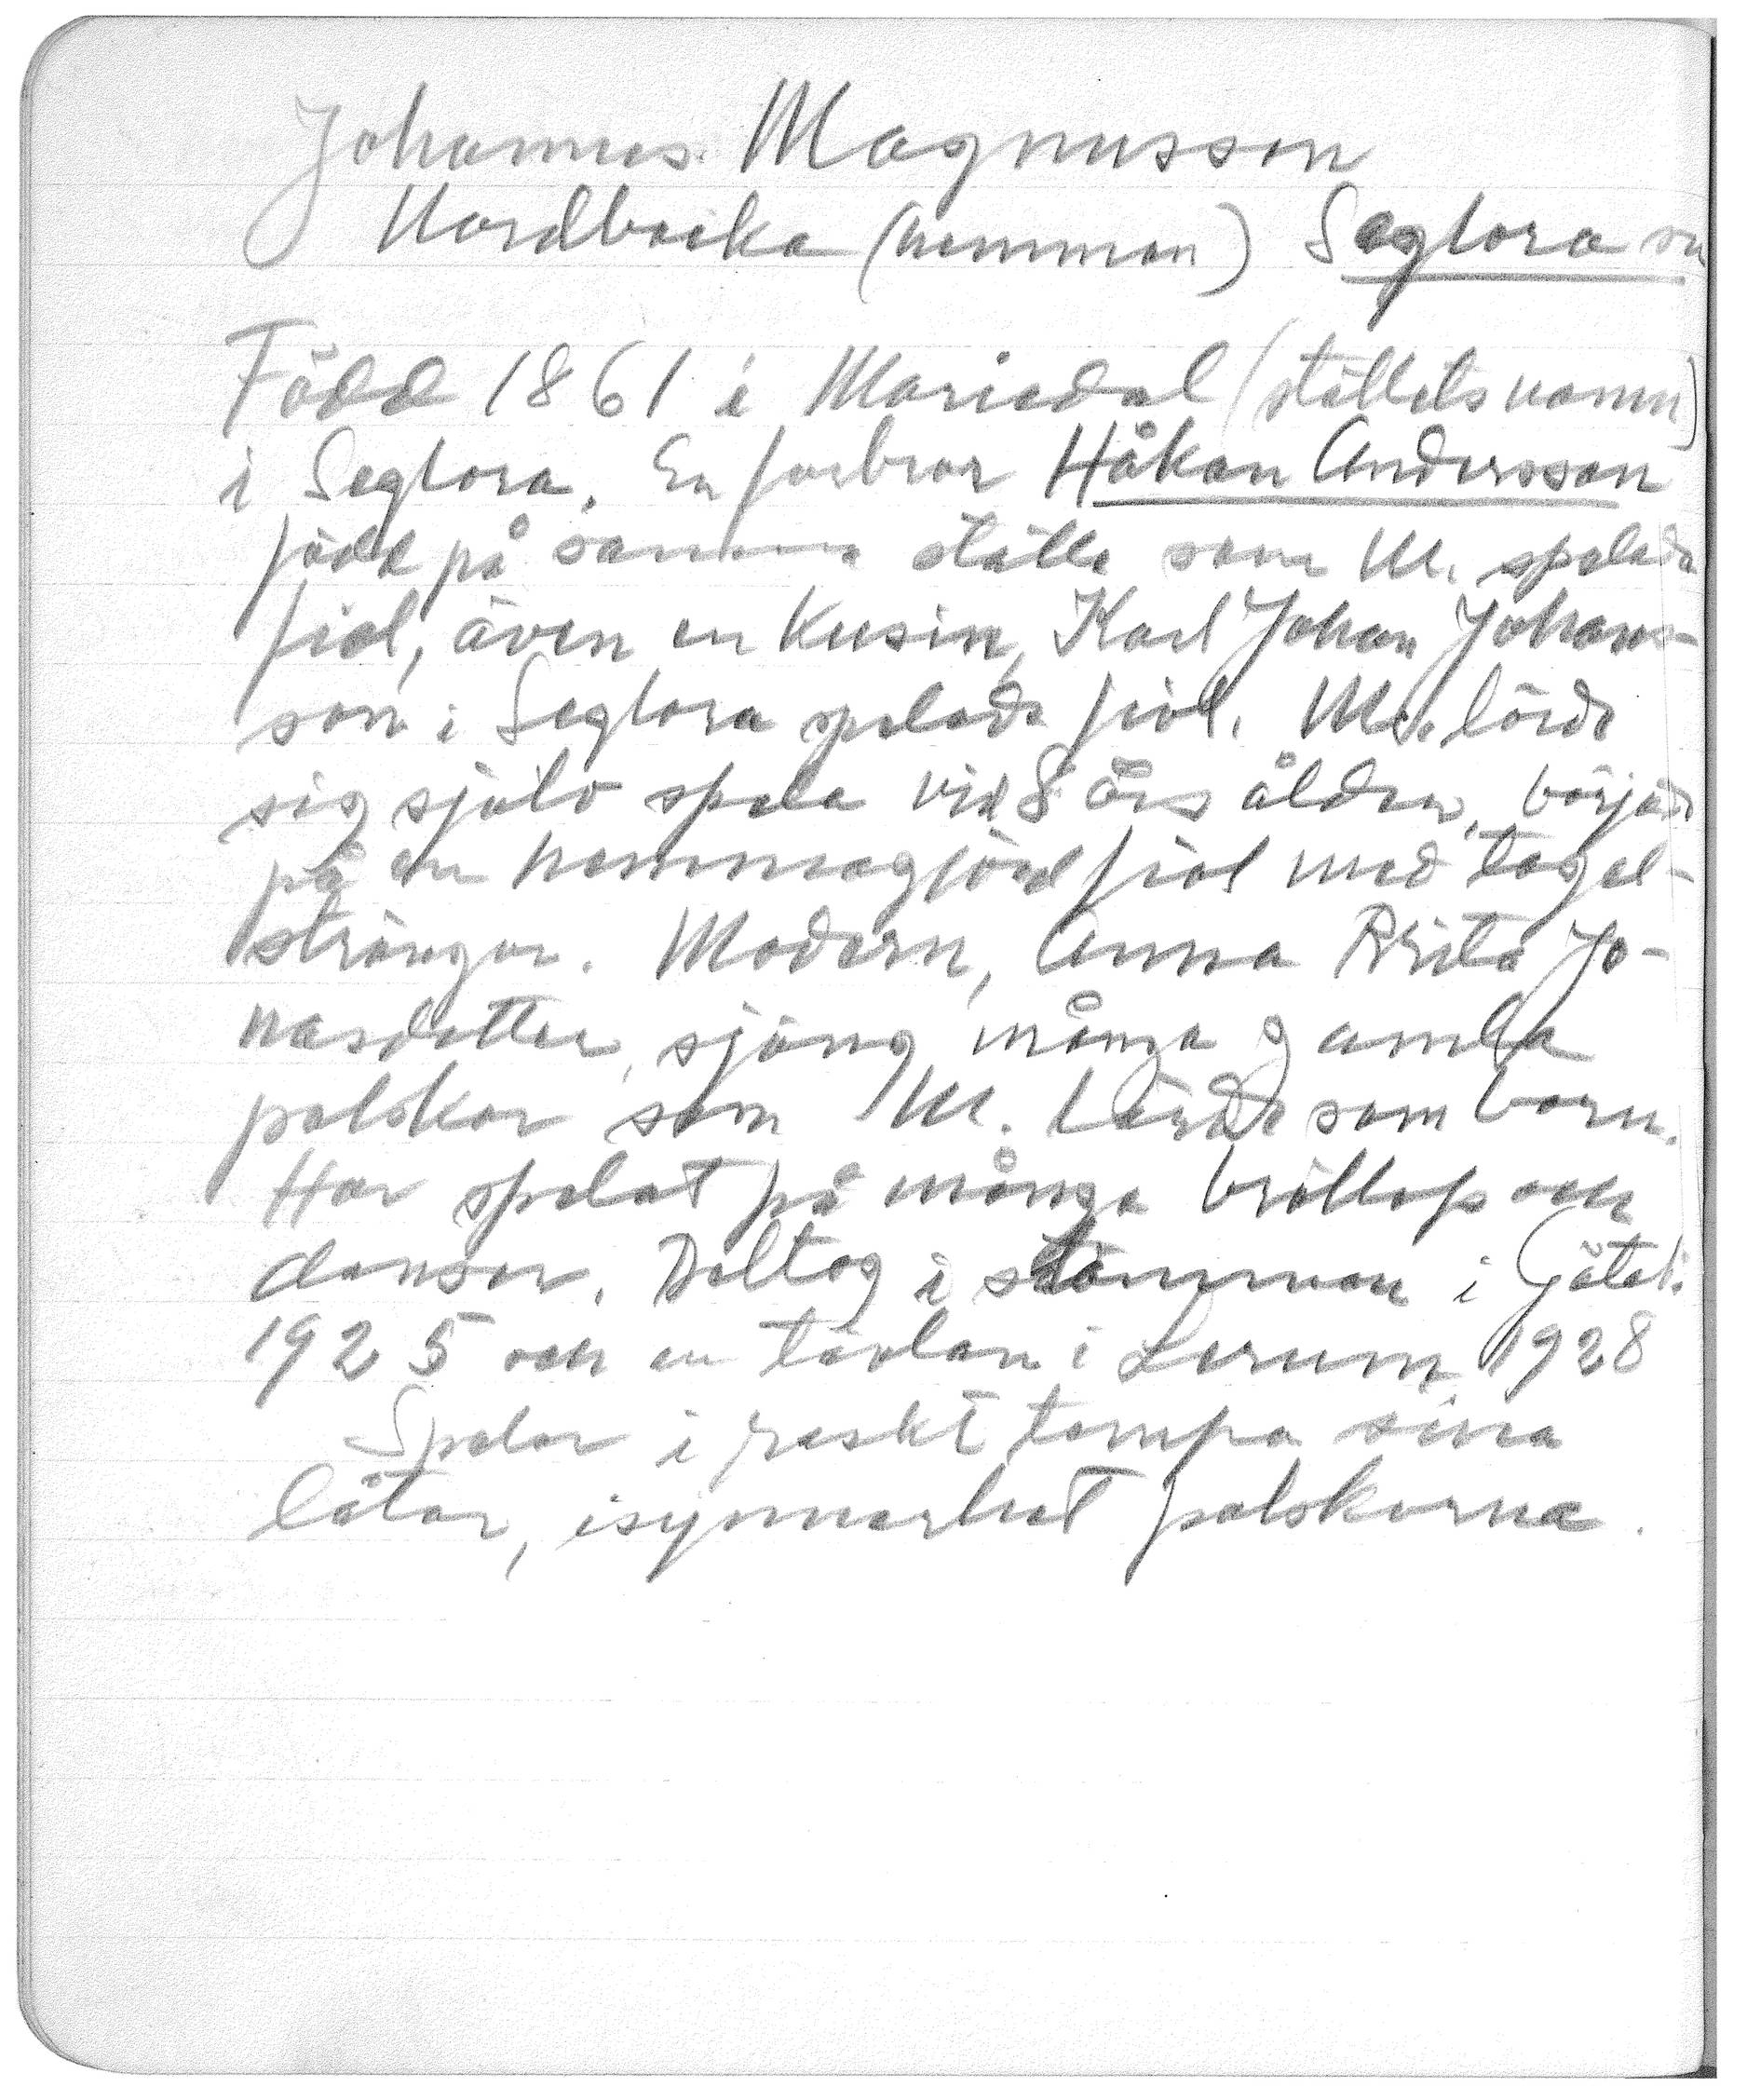 Johannes Magnusson
Nordbacka (hemman) Seglora sn
Född 1861 i Mariedal (ställets namn)
i Seglora. En farbror Håkan Andersson
född på samma ställe som M. spelade
fiol, även en kusin, Karl Johan Johans-
son i Seglora spelade fiol. M. lärde
sig själv spela vid 8 års åldern, började
på en hemmagjord fiol med tagel-
strängar. Modern, Anna Brita Jo-
nasdotter, sjöng många gamla
polskor som M. lärde som barn.
Har spelat på många bröllop och
danser. Deltog i stämman i Göteb.
1925 och en tävlan i Lerum 1928
Spelar i raskt tempo sina
låtar, isynnerhet polskorna.